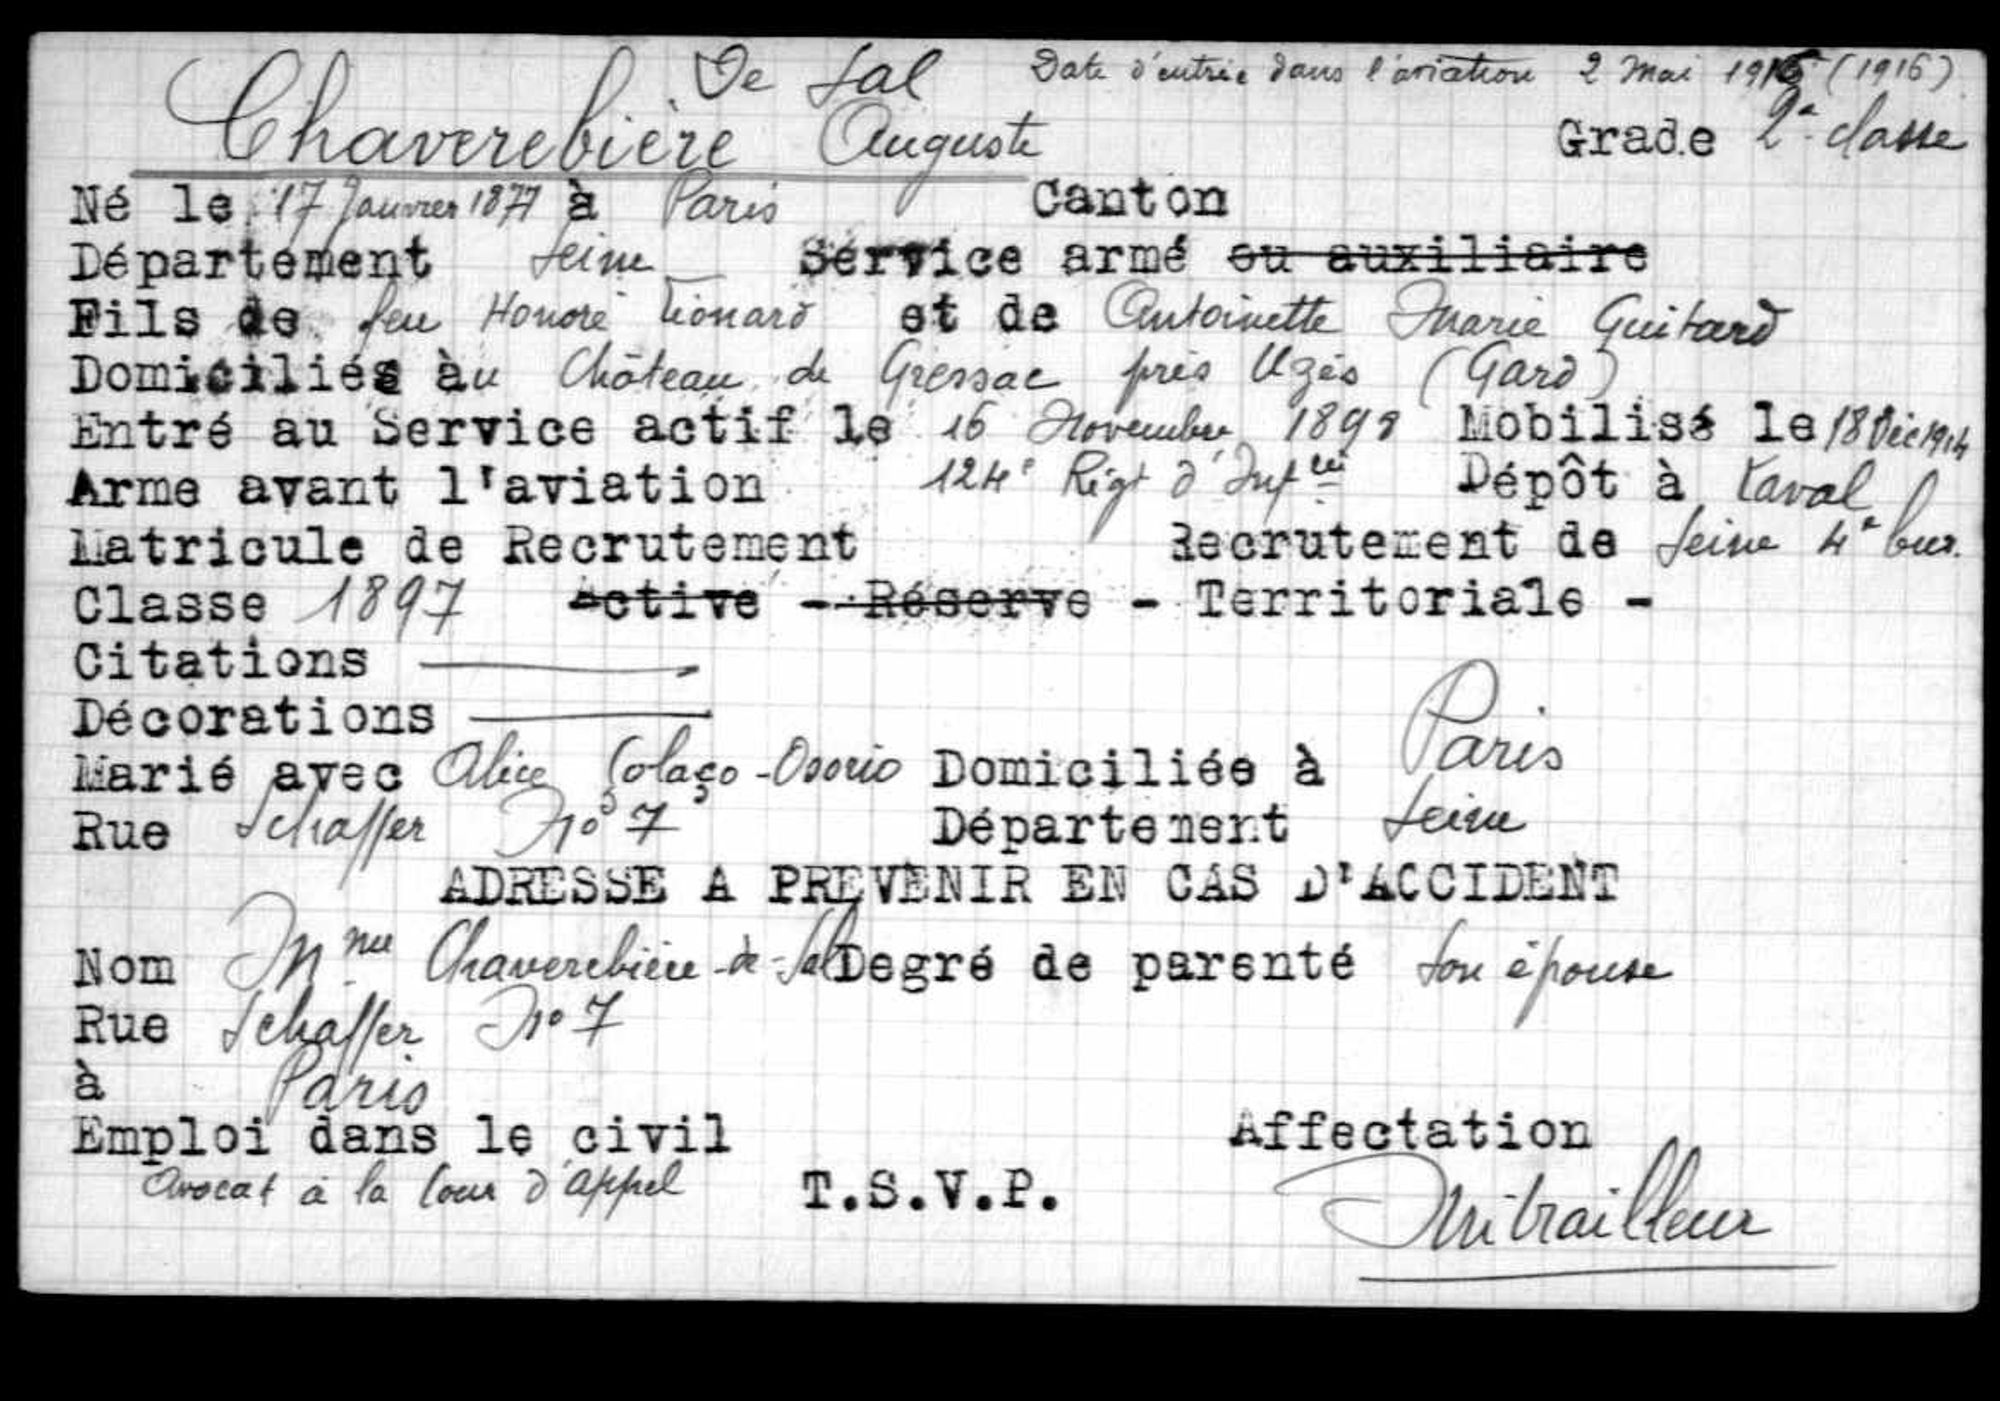 De Sal Date d'entrée dans l'aviation 2 Mai 1916 (1916)
Chaverebière Auguste Grade 2e classe
Né le 17 Janvier 1877 à Paris Canton
Département Seine Service armé ou auxiliaire
Fils de feu Honoré Léonard et de Antoinette Marie Guitard
Domiciliés àu Château de Gressac près Uzès (Gard)
Entré au Service actif le 16 Novembre 1898 Mobilisé le 18 Déc 1914
Arme avant l'aviation 124e Régt d'Infrie Dépôt à Laval
Matricule de Recrutement Recrutement de Seine 4e bur.
Classe 1897 Active - Réserve - Territoriale -
Citations
Décorations
Marié avec Alice Colaço-Osorio Domiciliée à Paris
Rue Schaffer No 7 Département Seine
ADRESSE A PREVENIR EN CAS D'ACCIDENT
Nom Mme Chaverebière-de-Sal Degré de parenté Son épouse
Rue Schaffer No 7
à Paris
Emploi dans le civil Affectation
Avocat à la Cour d'appel T.S.V.P. Mitrailleur